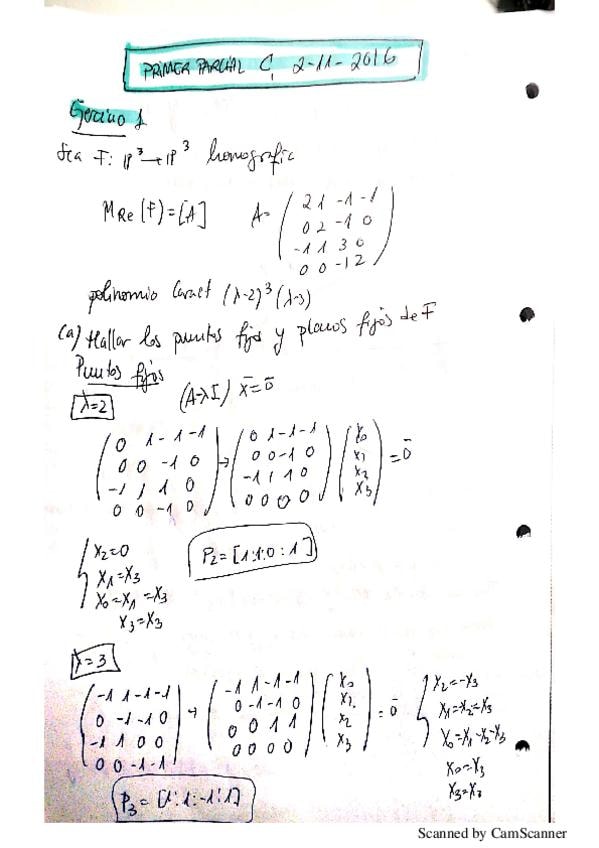 PRIMER PARCIAL C, 2-11-2016
Ejercicio 1
Sea F: P³→P³ homografía
M Re (F)=[A] A= ( 2 1 -1 -1
0 2 -1 0
-1 1 3 0
0 0 -1 2 )
polinomio Caract (λ-2)³(λ-3)
(a) Hallar los puntos fijos y planos fijos de F
Puntos fijos
λ=2 (A-λI) x̄=0̄
( 0 1 -1 -1 ) → ( 0 1 -1 -1 ) ( x₀ )
( 0 0 -1 0 ) ( 0 0 -1 0 ) ( x₁ ) = 0̄
( -1 1 1 0 ) ( -1 1 1 0 ) ( x₂ )
( 0 0 -1 0 ) ( 0 0 0 0 ) ( x₃ )
{ x₂=0 P₂=[1:1:0:1]
x₁=x₃
x₀=x₁=x₃
x₃=x₃
λ=3
( -1 1 -1 -1 ) → ( -1 1 -1 -1 ) ( x₀ ) { x₂=-x₃
( 0 -1 -1 0 ) ( 0 -1 -1 0 ) ( x₁ ) = 0̄ x₁=-x₂=x₃
( -1 1 0 0 ) ( 0 0 1 1 ) ( x₂ ) x₀=x₁-x₂-x₃
( 0 0 -1 -1 ) ( 0 0 0 0 ) ( x₃ ) x₀=x₃
x₃=x₃
P₃=[1:1:-1:1]
Scanned by CamScanner